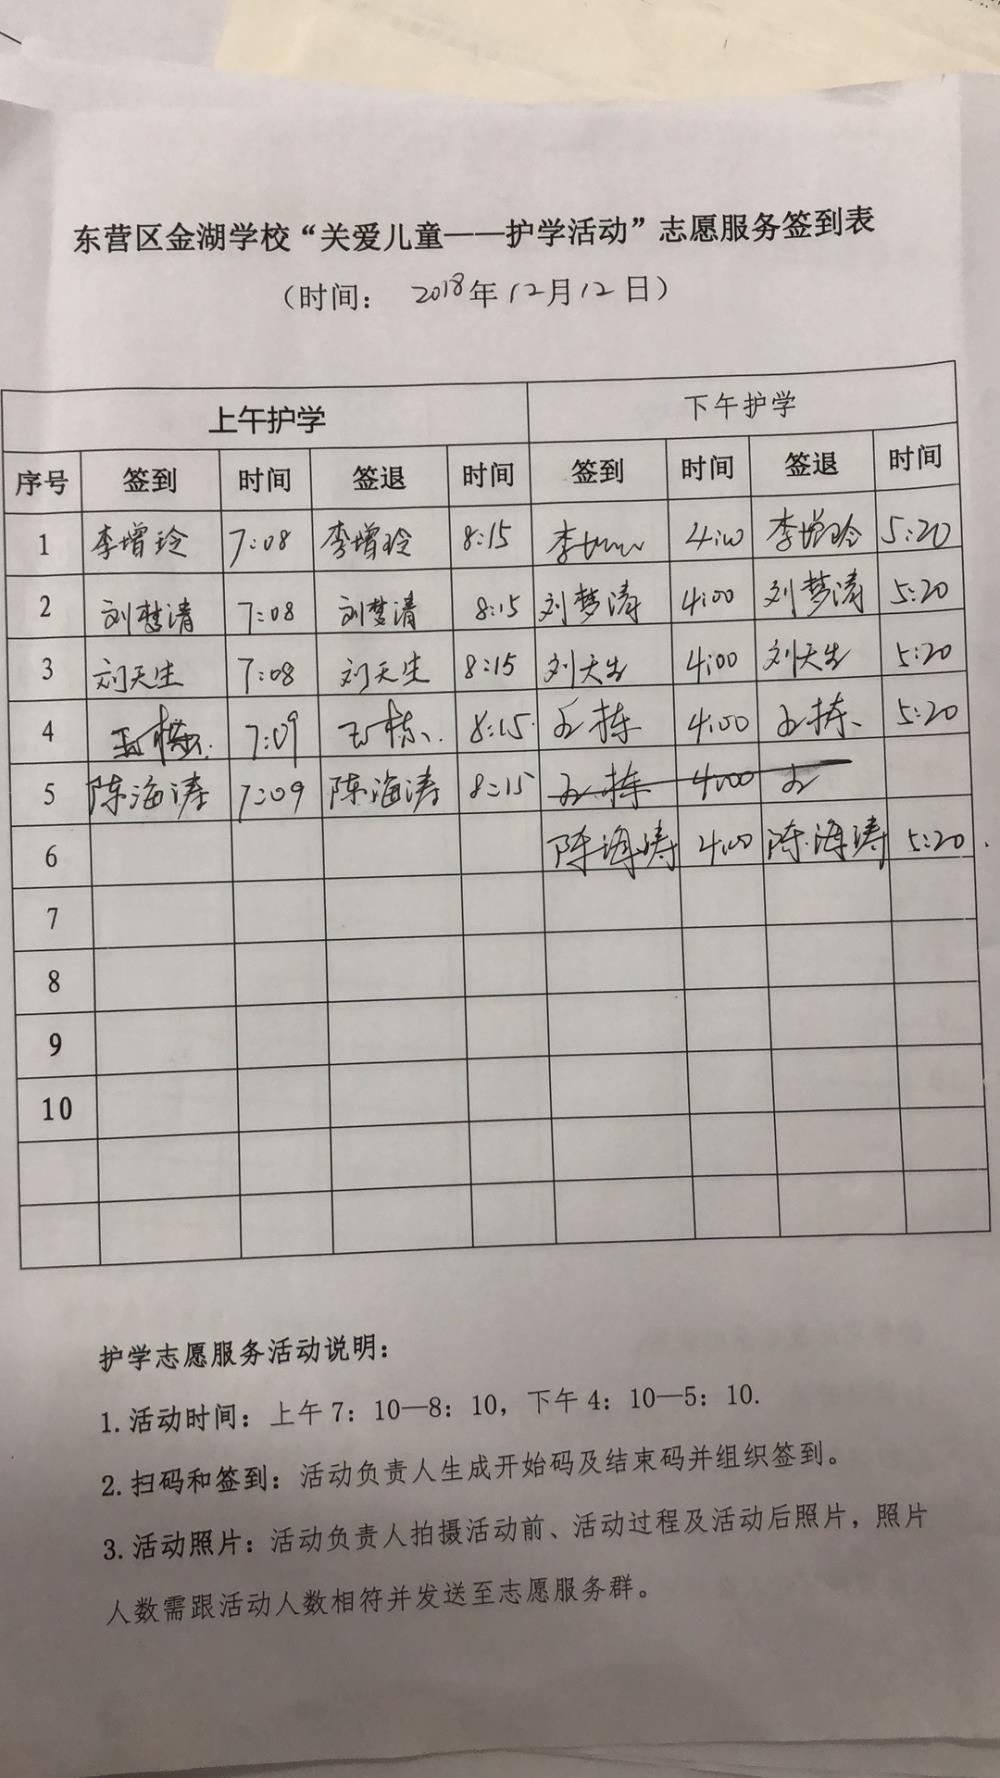 东营区金湖学校“关爱儿童——护学活动”志愿服务签到表
（时间： 2018年12月12日）
上午护学 下午护学
序号 签到 时间 签退 时间 签到 时间 签退 时间
1 李增玲 7:08 李增玲 8:15 李 4:00 李增玲 5:20
2 刘梦清 7:08 刘梦清 8:15 刘梦涛 4:00 刘梦涛 5:20
3 刘天生 7:08 刘天生 8:15 刘天生 4:00 刘天生 5:20
4 王栋 7:09 王栋 8:15 王栋 4:00 王栋 5:20
5 陈海涛 7:09 陈海涛 8:15 王栋 4:00 王
6 陈海涛 4:00 陈海涛 5:20
7
8
9
10
护学志愿服务活动说明：
1.活动时间：上午7：10—8：10，下午4：10—5：10.
2.扫码和签到：活动负责人生成开始码及结束码并组织签到。
3.活动照片：活动负责人拍摄活动前、活动过程及活动后照片，照片
人数需跟活动人数相符并发送至志愿服务群。